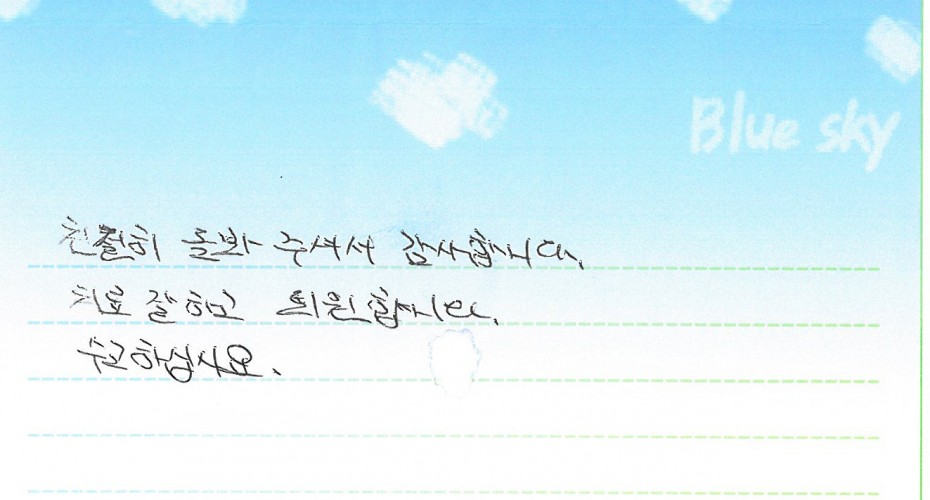 Blue sky
친절히 돌봐 주셔서 감사합니다.
치료 잘하고 퇴원합니다.
수고하십시요.